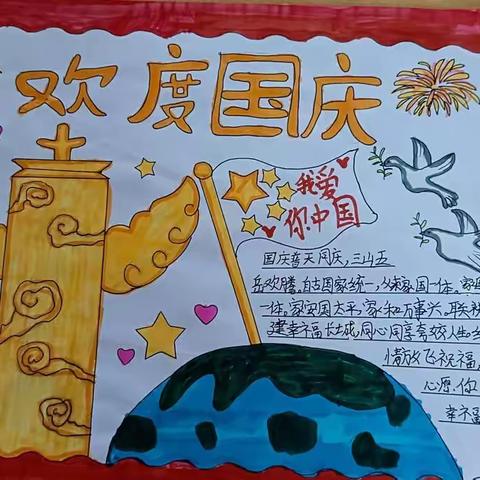 欢度国庆
我爱
你中国
国庆喜天同庆，三山五
岳欢腾。自古国家统一，
一体。家安国太平，家和万事兴。联
建幸福长城，同心同享
放飞祝福，
心愿，你
幸福